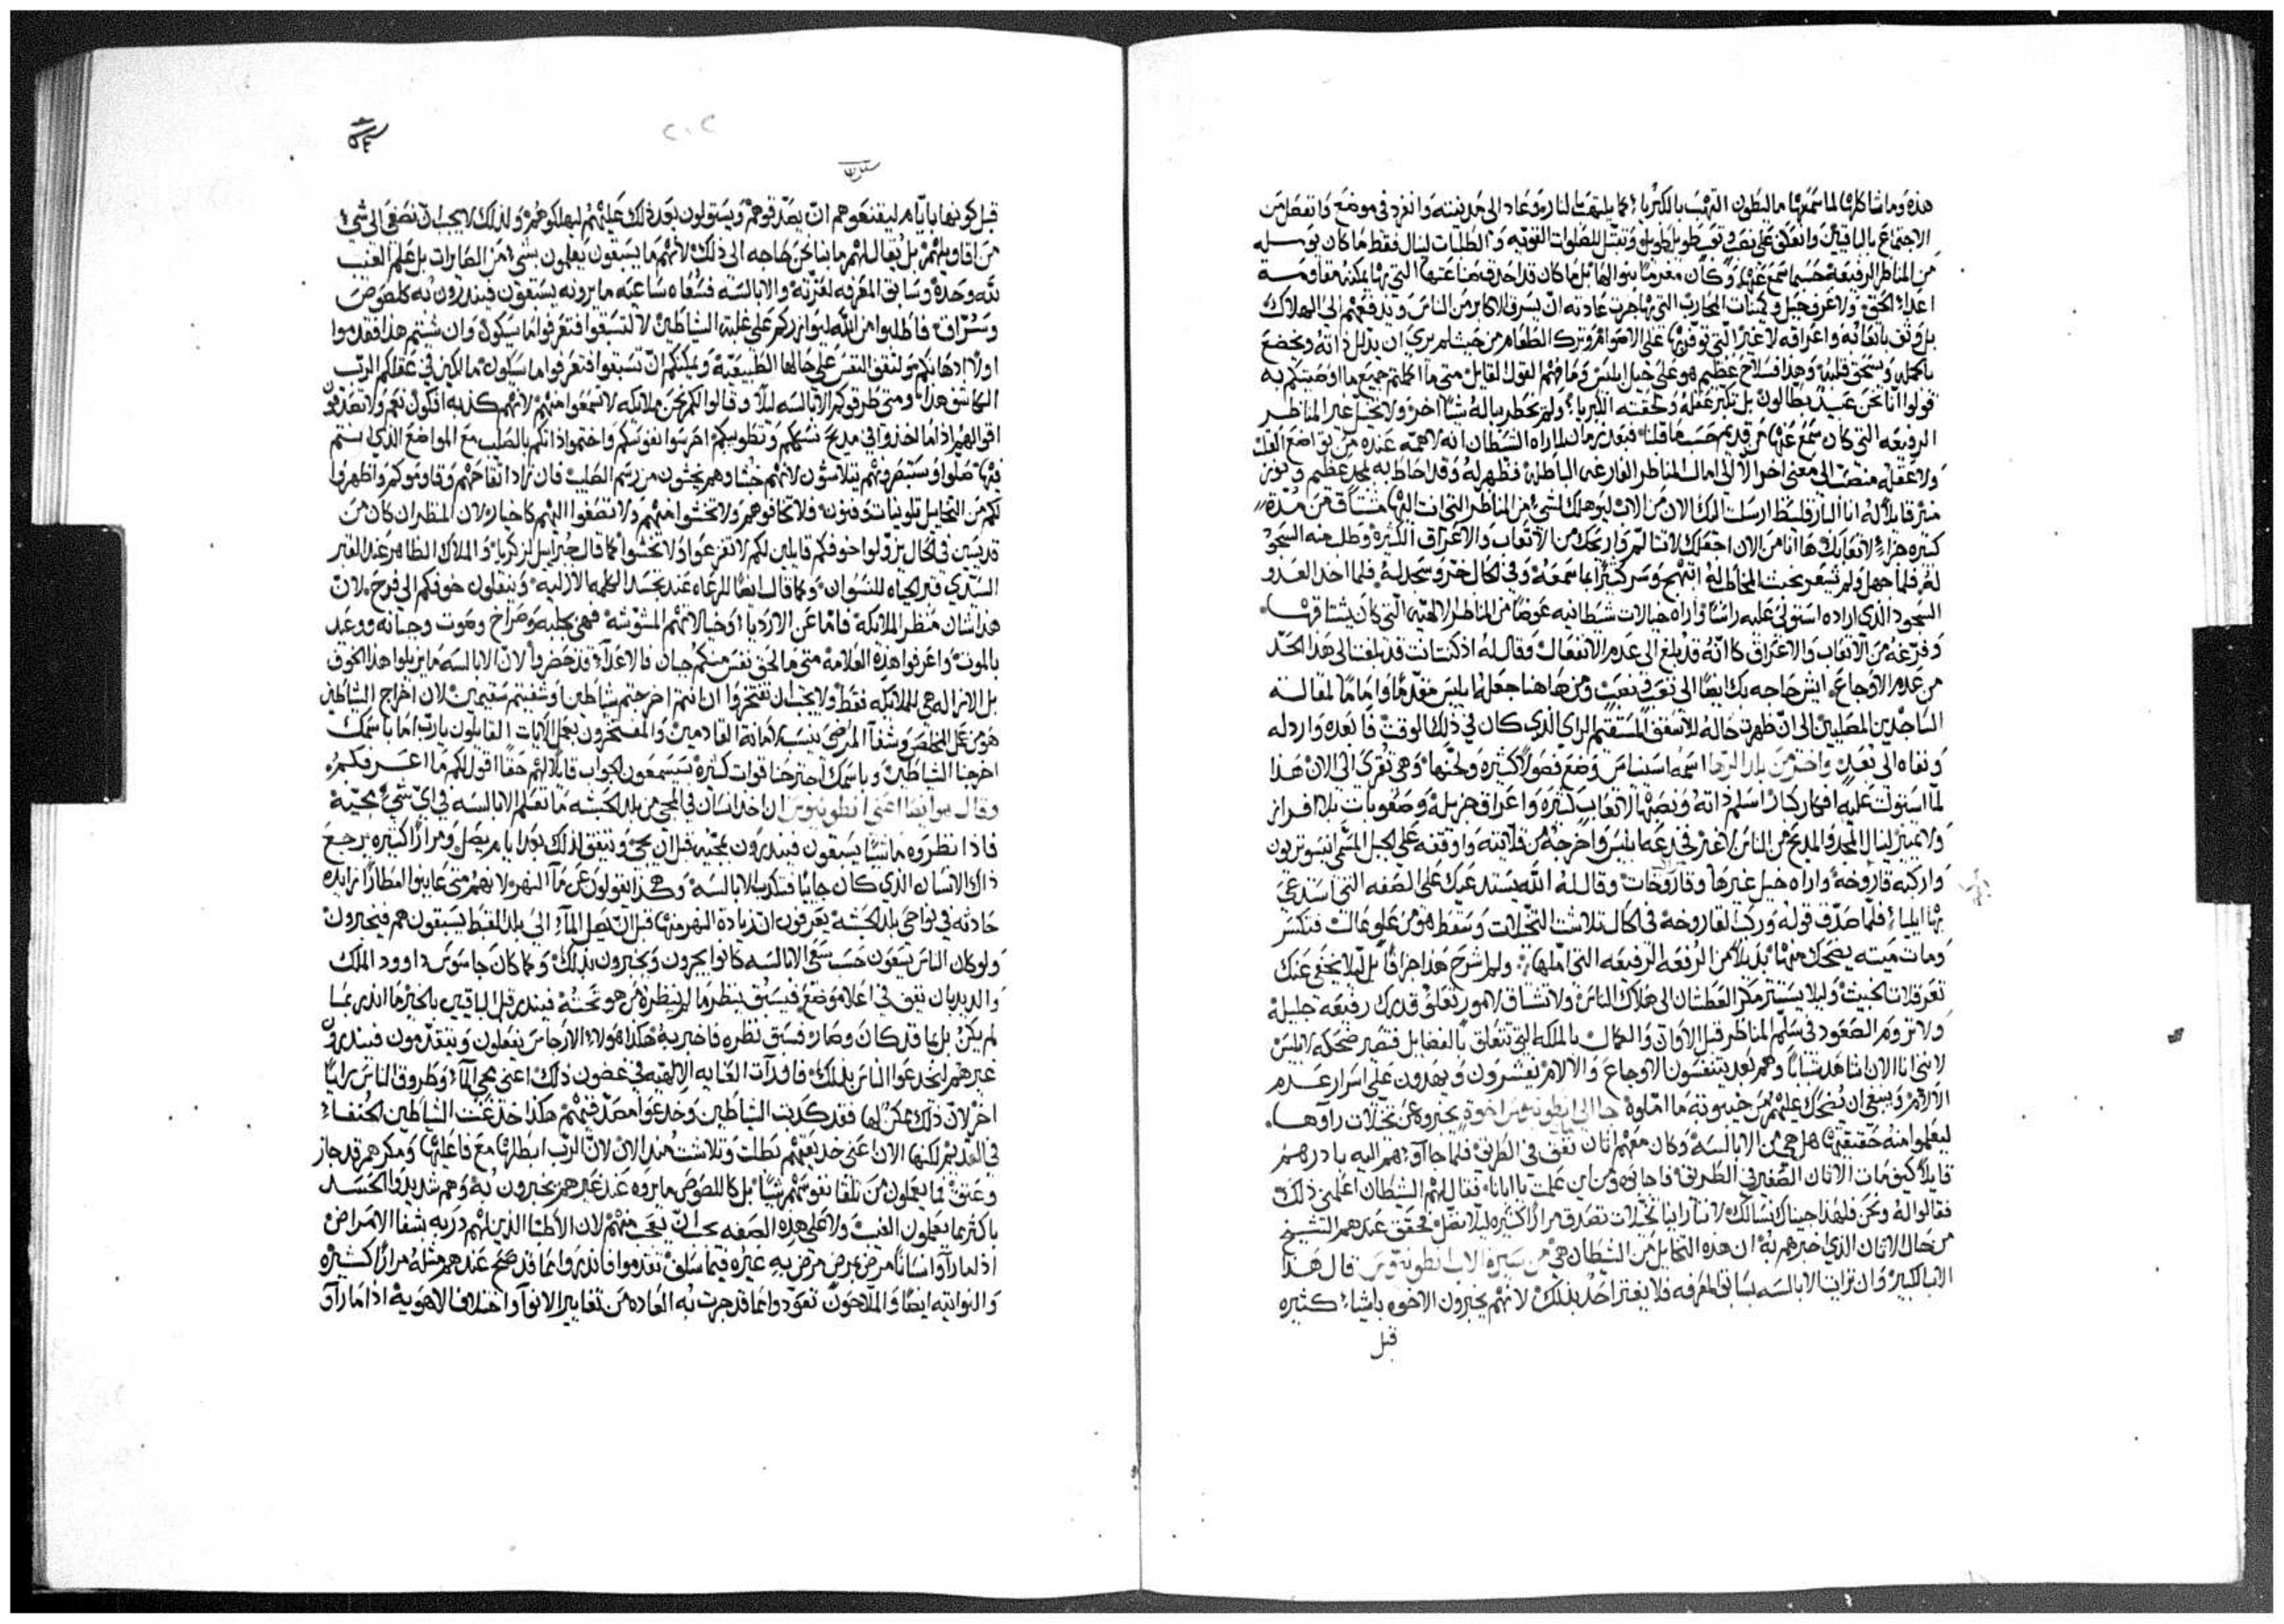 هذه وما شاكلها لما سمعها مالبطون التهب بالكبرياء كما يلتهب بالنار وعاد الى مدينته وانفرد في موضع وانفصل من
الاجتماع بالباقيين وانعكف على نصب وتوسط طويل وتفتل للصلوات القويه والطلبات لينال فقط ما كان توسله
من المناظر الرفيعة حسبما سمع عنها وكان مغرمًا بنوالها بل ما كان قد احذق صناعتها التي بها يمكنه مقاومة
اعداء الحق ولا عرف حيل وكمينات المحارب التي بها جرت عادته ان يسرق الاكابر من الناس ويدفعهم الى الهلاك
بل وثق باتعابه واعراقه لا غير التي توفرها على الاصوام وترك الطعام من حيث لم يرى ان يذلل ذاته ويخضع
بالكمليه ويسحق قلبه وهذا سلاح عظيم هو على حيل ابليس وما فهم القول القايل متى ما اكملتم جميع ما اوصيتكم به
قولوا اننا نحن عبيد بطالون بل تكبر عقله ولحقته الكبرياء ولم يخطر بباله شيًا اخر ولا تخيل غير المناظر
الرفيعه التي كان سمع عنها من قديم حسبما قلنا فبعد زمان لما راه الشيطان انه لا همة عنده من تواضع القلب
ولا عقله منتصب الى معنى اخر الا الى امال المناظر الفارغه الباطله فظهر له وقد احاط به مجد عظيم ونور
منير قايلاً له انا البارقليط ارسلت اليك الان من الاب ليوهلك لشيء من المناظر التي انت اليها مشتاق من مدة
كثيره جزاء لاتعابك ها انا من الان اجعلك لا تتالم واريحك من الاتعاب والاعراق الكثيرة وطلب منه السجود
له فلما جهل ولم يشعر بخبث المخاطب له ابتهج وسر كثيرًا بما سمعه وفي الحال خر وسجد له فلما اخذ العدو
السجود الذي اراده استولى عليه راسًا واراه خيالات شيطانيه عوضًا من المناظر الالهيه التي كان يشتاقها
وفرغه من الاتعاب والاعراق كانه قد بلغ الى عدم الانفعال وقال له اذ كنت انت قد بلغت الى هذا الحد
من عدم الاوجاع ايش حاجه بك ايضًا الى تعب ونصب ومن هاهنا جعله ابليس مقدمًا وامامًا لمقالة
الساجدين المصليين الى ان ظهرت حاله للاسقف المستقيم الراي الذي كان في ذلك الوقت فابعده وارذله
ونفاه الى بُعد واخر من بلد الرها اسمه اسناس وضع فصولاً كثيره ولحنها وهي تُقرى الى الان هذا
لما استولت عليه افكار كبار اسلم ذاته ونصبها لاتعاب كثيرة واعراق جزيلة وصعوبات بلا افراز
ولا تمييز لينال المجد والمديح من الناس لا غير فخدعه ابليس واخرجه من قلايته واوقفه على الجبل المسمى انسوتريون
واركبه قاروخة واراه خيل غيرها وقاروخات وقال له الله يستدعيك على الصفه التي استدعي
بها ايليا فلما صدق قوله وركب القاروخة في الحال تلاشت التخيلات وسقط هو من علو عالٍ فتكسر
ومات ميته يضحك منها بديلاً من الرفعه الرفيعه التي املها ولم اشرح هذا جزافًا بل ليلا يخفى عنك
تعرقلات الخبيث وليلا يستتر مكر العطشان الى هلاك الناس ولا تشتاق لامور تعلو قدرك رفيعه جليله
ولا تروم الصعود في سلم المناظر قبل الاوان والكمال بالملكه التي تتعلق بالفضايل فتصير ضحكه لابليس
لانني انا الان اشاهد شبابًا وهم بعد يتنفسون الاوجاع والالام يفسرون ويهدون على اسرار عدم
الالام وينبغي ان نُضحك عليهم من خيبوبة ما املوه جا الى انطونيوس اخوة يخبروه عن تخيلات راوها
ليعلموا منه حقيقتها هل هي من الابالسه وكان معهم اتان نفق في الطريق فلما جاآوا هم اليه بادرهم
قايلاً كيف مات الاتان الصغير في الطريق فاجابوه ومن اين علمت يا ابانا فقال لهم الشيطان اعلمني ذلك
فقالوا له ونحن فلهذا جيناك نسالك لاننا راينا تخيلات تصدق مرارًا كثيره ليلا نضل فحقق عندهم الشيخ
من حال الاتان الذي اخبرهم به ان هذه التخاييل من الشيطان هي من سيرة الاب انطونيوس قال هذا
الاب الكبير وان تراات الابالسه بسابق المعرفه فلا يغتر احد بذلك لانهم يخبرون الاخوه باشياء كثيره
قبل
٢٠٢
قبل كونها بايام ليقنعوهم ان يصدقوهم ويستولون بعد ذلك عليهم ليهلكوهم ولذلك لا يجب ان نصغى الى شيء
من اقاويلهم بل يقال لهم ما بنا نحن حاجه الى ذلك لانهم ما يسبقون يعلمون بشيء من الصايرات بل علم الغيب
لله وحده وسابق المعرفه لعزته والابالسه فسُعاه ساعيه ما يرونه يستبقون فينذرون به كلصوص
وسُرّاق فاطلبوا من الله ليوازركم على غلبة الشياطين لا لتسبقوا فتعرفوا ما سيكون وان شيتم هذا فقدموا
اولاً اذهانكم هو لتقف النفس على حالها الطبيعية ويمكنكم ان تسبقوا فتعرفوا ما سيكون مالكين في عقلكم الرب
الكاشف هذا ومتى طرقوكم الابالسه ليلاً وقالوا لكم نحن ملايكه لا تسمعوا منهم لانهم كذبه افكون نعم ولا تصدقون
اقوالهم اذا ما اخذوا في مديح نسككم وتطويبكم احرسوا نفوسكم واختموا ذاتكم بالصليب مع المواضع الذي انتم
فيها صلوا وستبصرونهم يتلاشون لانهم خُشاه وهم يخشون من رسم الصليب فان زاد اتقاحهم وقاوموكم واظهروا
لكم من التخاييل تلوينات وفنون فلا تخافوهم ولا تخشوا منهم ولا تصغوا اليهم كاخيار لان المنظر ان كان من
قديسين في الحال يزولوا خوفكم قايلين لكم لا تفزعوا ولا تخشوا كما قال جبراييل لزكريا والملاك الظاهر عند القبر
السيدي قبر الحياه للنسوان وكما قال ايضًا للرعاه عند تجسد الكلمه الازلية وينقلون خوفكم الى فرح لان
هذا شان منظر الملايكة فاما عن الاردياء وخيالاتهم المشوشه فهي جلبه وصراخ وصوت وجنانه ووعيد
بالموت واعرفوا هذه العلامة متى ما لحق نفس منكم جبان فالاعداء قد حضروا لان الابالسه ما يزيلوا هذا الخوف
بل الازاله هي للملايكه فقط ولا يجب ان تفتخروا ان انتم اخرجتم شياطين او شفيتم سقيمين لان اخراج الشياطين
هو من عمل المخلص وشفاء المرضى بنسب لامانة القادمين والمفتخرون بعمل الايات القايلون يارب اما باسمك
اخرجنا الشياطين وباسمك اجترحنا قوات كثيرة سيسمعون الجواب قايلاً لهم حقًا اقول لكم ما اعرفكم
وقال هو ايضًا اعني انطونيوس ان اخذ انسان في المجي من بلد الحبشه ما تعلم الابالسه في اي شيء يجيه
فاذا نظروه ماشيًا يسبقون فينذرون بمجيه قبل ان يجي ويتفق لذلك بعد ايام يصل ومرارًا كثيره يرجع
ذاك الانسان الذي كان جاييًا فتكذب الابالسه وهكذا يقولون عن ماء النهر لانهم متى عاينوا امطارًا زايده
حادثه في نواحي بلد الحبشه يعرفون ان زيادة النهر منها قبل ان يصل الماء الى بلد القبط يسبقون هم فيخبرون
ولو كان الناس يسعون حسب سعى الابالسه كانوا يجرون ويخبرون بذلك وكما كان جاسوس داوود الملك
والديدبان يقف في اعلا موضع فيسبق ينظر ما لم ينظره من هو تحته فينذر قبل الباقيين بالخبر ما انذر بما
لم يكن بل بما قد كان وصار فسبق نظره فاخبر به هكذا هولاء الارجاس يفعلون ويتقدمون فينذرون
غيرهم ليخدعوا الناس بذلك فاذا رات العنايه الالهيه في غضون ذلك اعني مجي الماء وطروق الناس رايًا
اخر لان ذلك ممكن لها فقد كذبت الشياطين وخدعوا مصدقيهم هكذا خدعت الشياطين الحنفاء
في القديم لكنها الان اعني خديعتهم بطلت وتلاشت منذ الان لان الرب ابطلها مع فاعليها ومكرهم قد جاز
وعتق فما يعملون من تلقا نفوسهم شيًا بل كاللصوص ما يروه عند غيرهم يخبرون به وهم شديدوا الحسد
باكثر ما يعلمون الغيب ولا على هذه الصفه يجب ان يتعجب منهم لان الاطبا الذين لهم دربه بشفا الامراض
اذا ما راوا انسانًا مرض بمرض مرض به غيره فيما سلف تقدموا فانذروا بما قد صح عندهم مثله مرارًا كثيره
والنواتيه ايضًا والملاحون تعودوا بما قد جرت به العاده من تغايير الانواء واختلاف الاهوية اذا ما راو